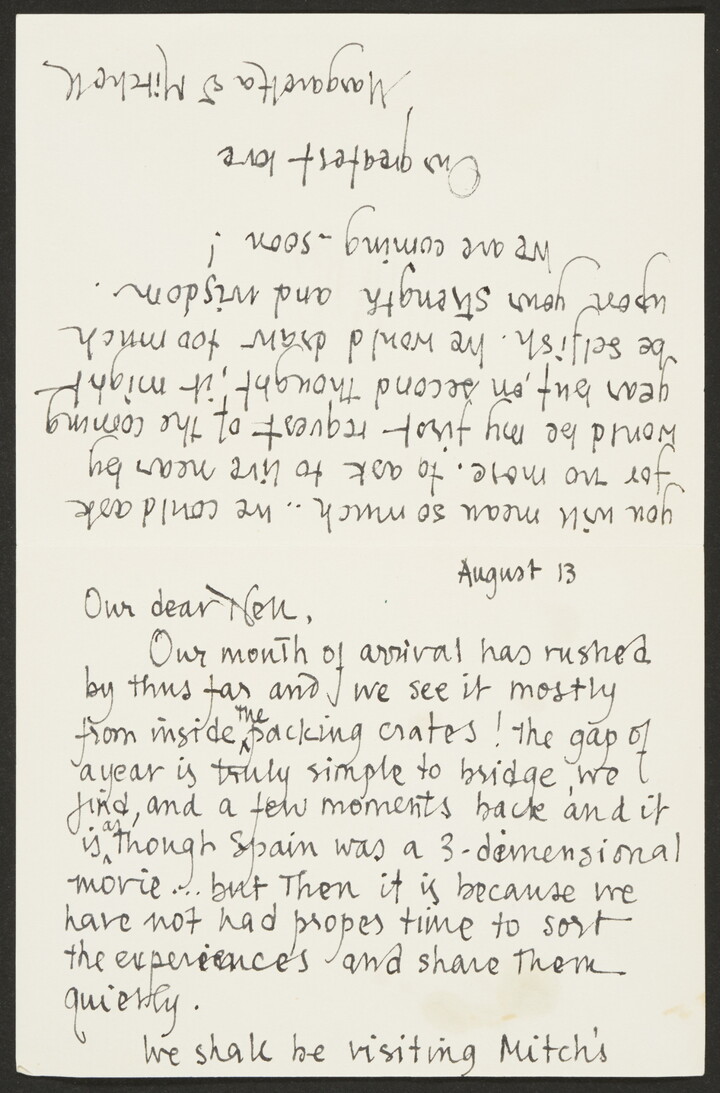 August 13
Our dear Nell,
Our month of arrival has rushed
by thus far and we see it mostly
from inside the packing crates! The gap of
a year is truly simple to bridge, we
find, and a few moments back and it
is as though Spain was a 3-dimensional
movie... but Then it is because we
have not had proper time to sort
the experiences and share them
quietly.
We shall be visiting Mitch's
you will mean so much .. we could ask
for no more. to ask to live near by
would be my first request of the coming
year but, on second thought, it might
be selfish. We would draw too much
upon your strength and wisdom.
We are coming - soon!
Our greatest love
Margaretta & Mitchell